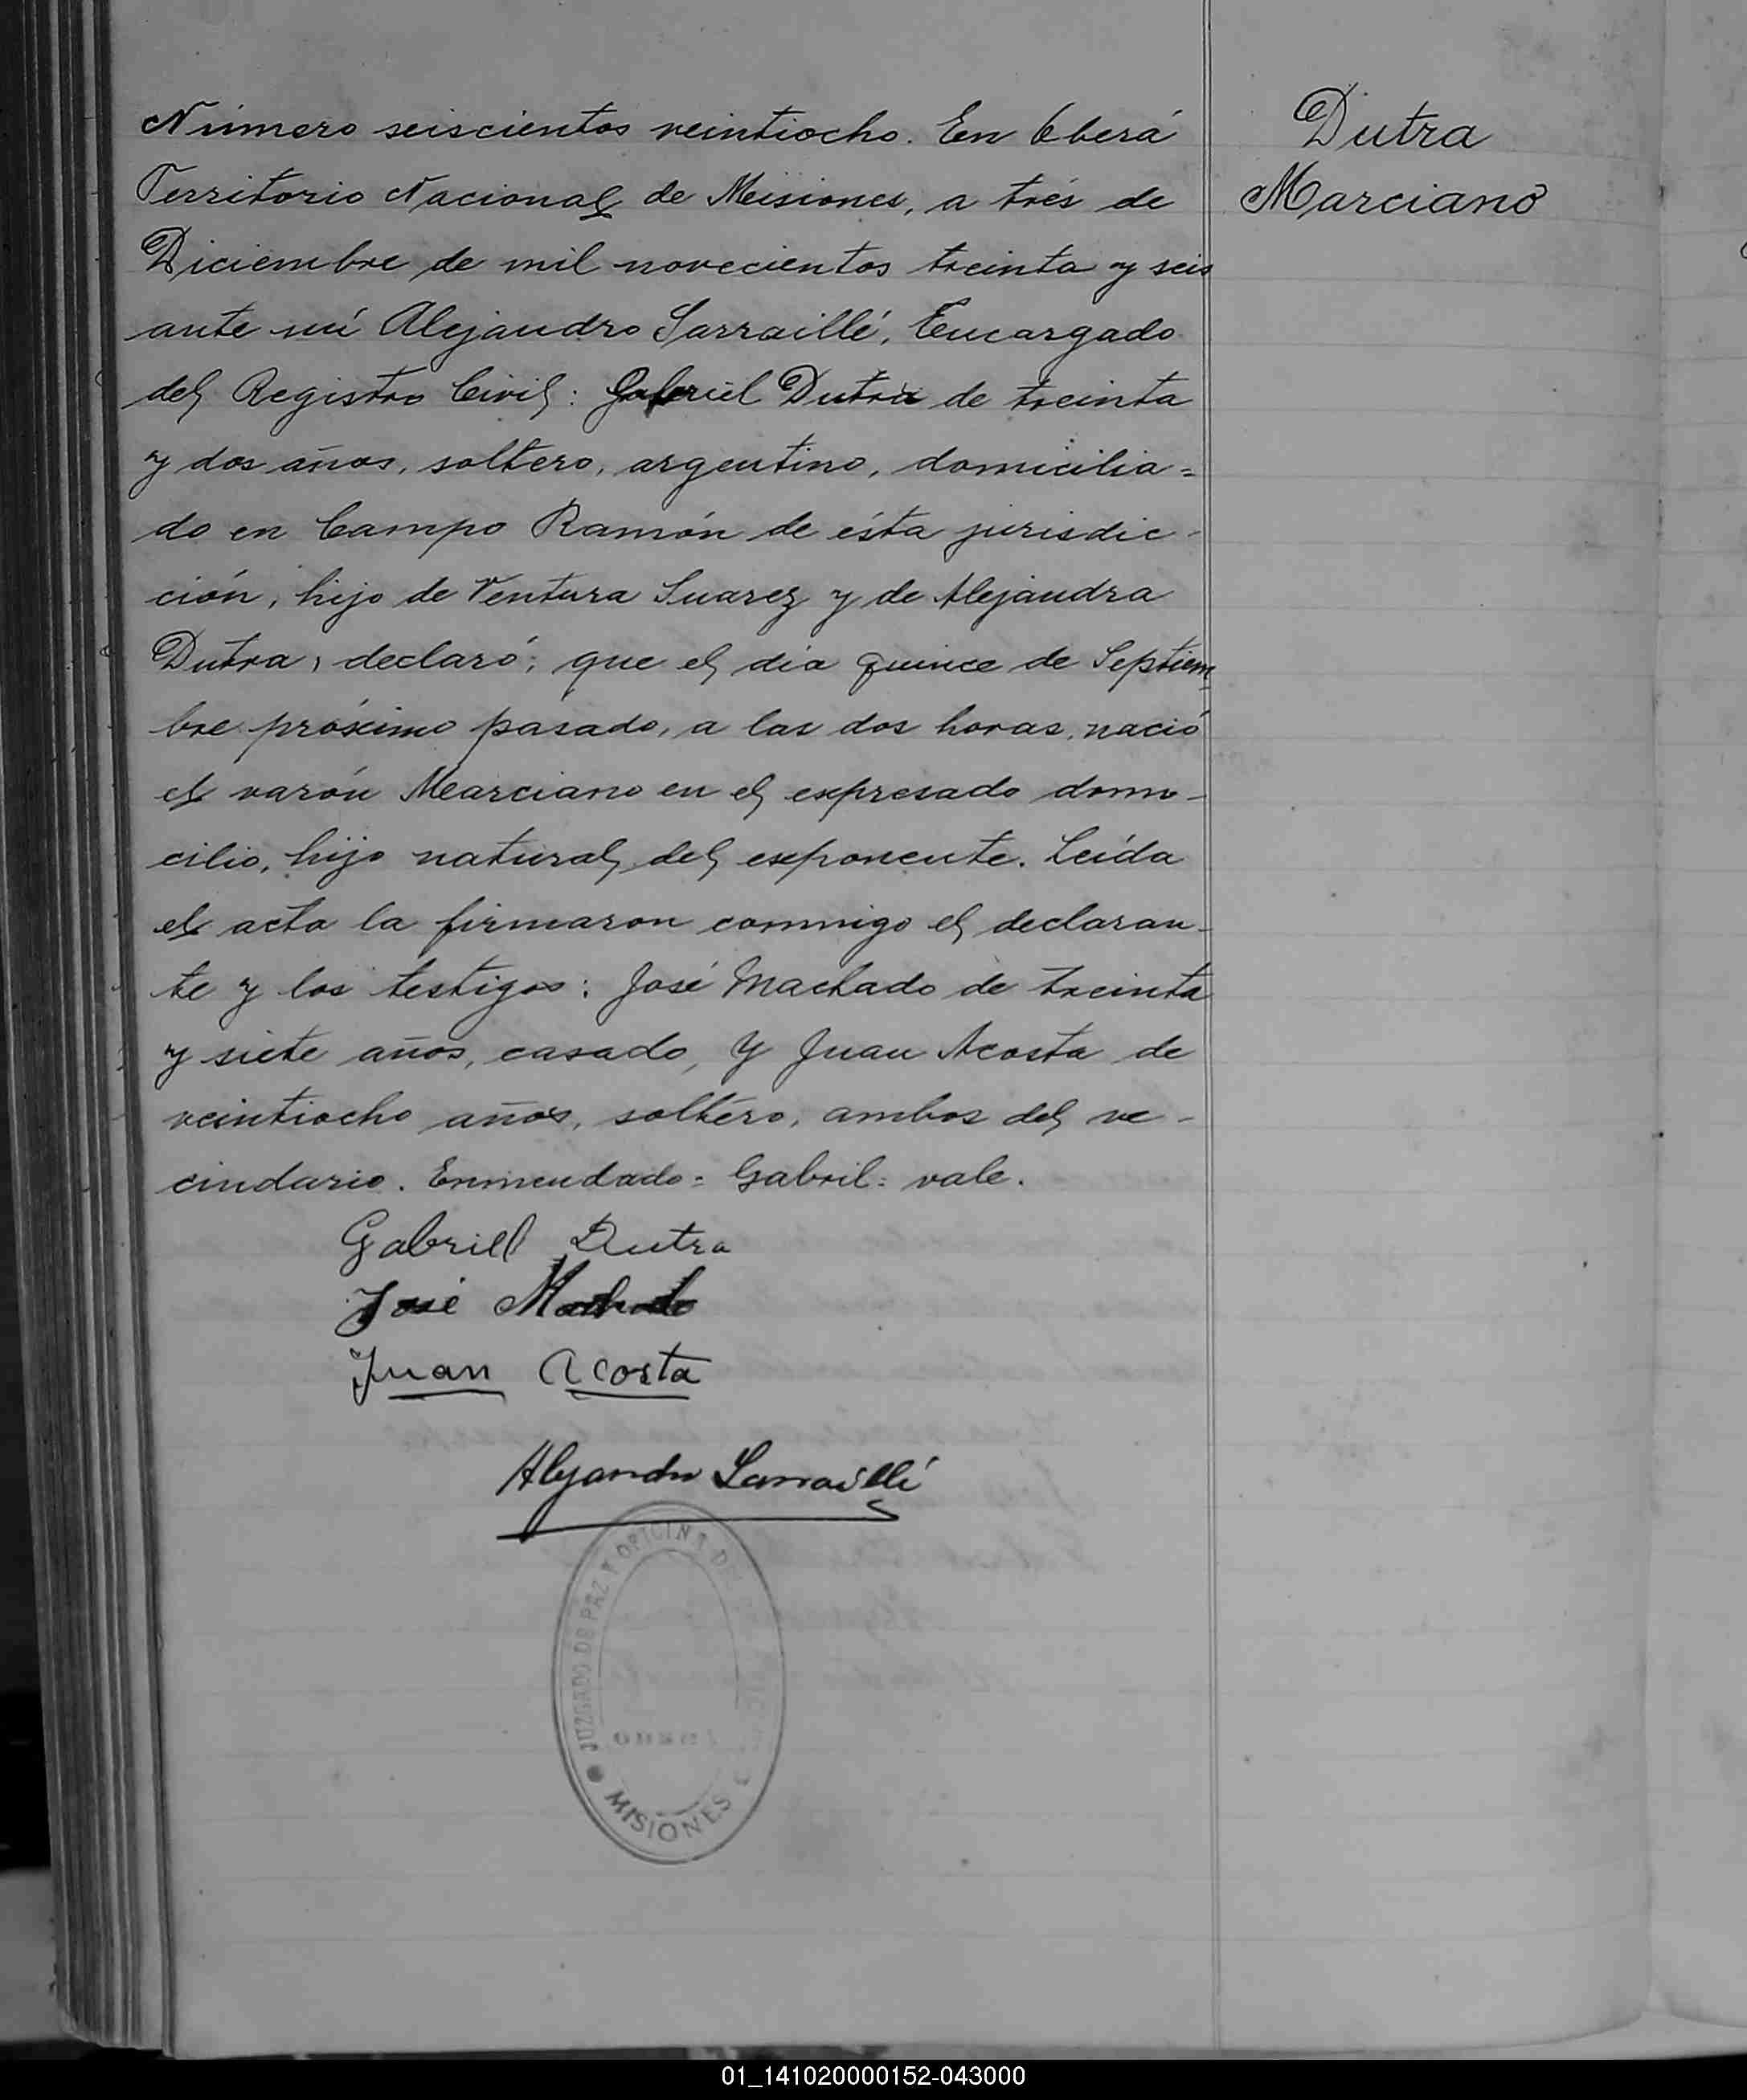 Número seiscientos veintiocho. En Oberá
Territorio Nacional de Misiones, a trés de
Diciembre de mil novecientos treinta y seis
ante mí Alejandro Sarraillé, Encargado
del Registro Civil: Gabriel Dutra de treinta
y dos años, soltero, argentino, domicilia=
do en Campo Ramón de ésta jurisdic-
ción, hijo de Ventura Suarez y de Alejandra
Dutra, declaró; que el día quince de Septiem-
bre próximo pasado, a las dos horas, nació
el varón Marciano en el expresado domi-
cilio, hijo natural del exponente. Leída
el acta la firmaron conmigo el declaran-
te y los testigos: José Machado de treinta
y siete años, casado, y Juan Acosta de
veintiocho años, soltero, ambos del ve-
cindario. Enmendado= Gabril= vale.
Gabriell Dutra
José Machado
Juan Acosta
Alejandro Sarraillé
JUZGADO DE PAZ Y OFICINA DE
MISIONES
Dutra
Marciano
01_141020000152-043000